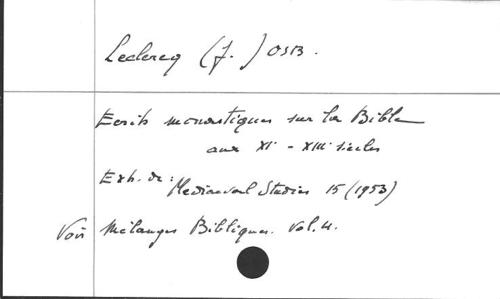 Leclercq (J.) OSB.
Ecrits monastiques sur la Bible
aux XIe - XIIIe siècles
Extr. de: Mediaeval Studies 15 (1953)
Voir Mélanges Bibliques. Vol. 4.